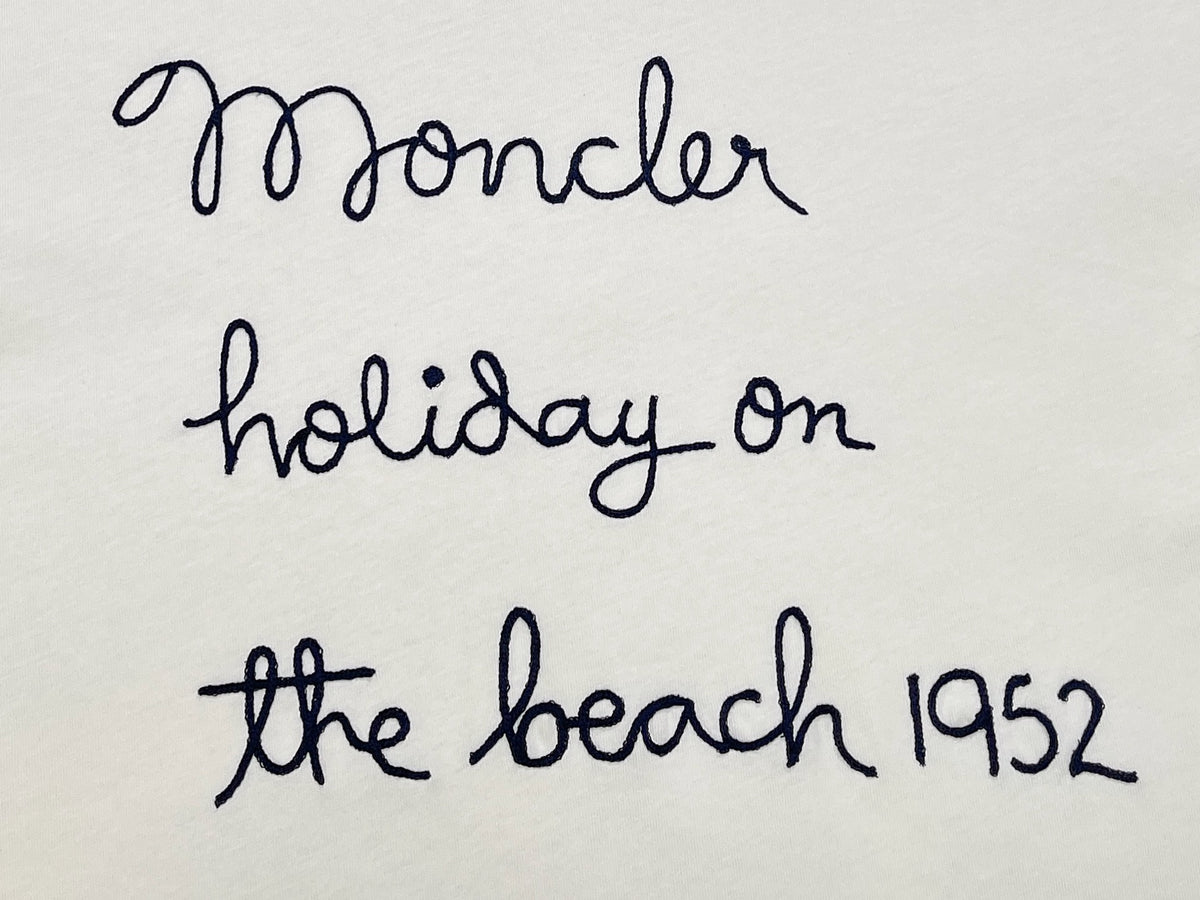 Moncler
holiday on
the beach 1952